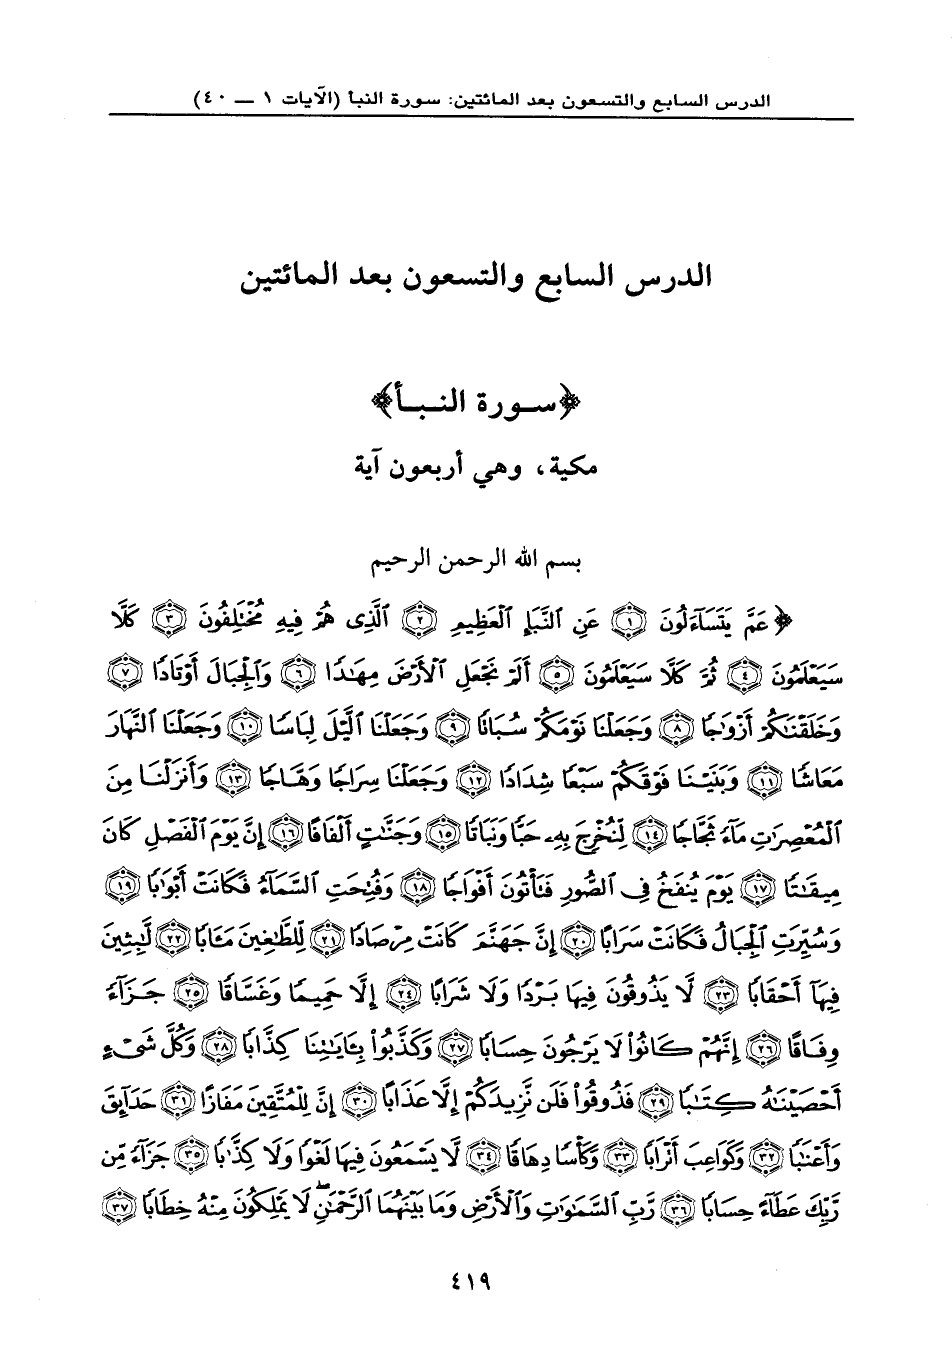 الدرس السابع والتسعون بعد المائتين: سورة النبأ (الآيات ١ — ٤٠)
الدرس السابع والتسعون بعد المائتين
﴿سـورة النـبـأ﴾
مكية، وهي أربعون آية
بسم الله الرحمن الرحيم
﴿عَمَّ يَتَسَآءَلُونَ ۝١ عَنِ ٱلنَّبَإِ ٱلْعَظِيمِ ۝٢ ٱلَّذِى هُمْ فِيهِ مُخْتَلِفُونَ ۝٣ كَلَّا
سَيَعْلَمُونَ ۝٤ ثُمَّ كَلَّا سَيَعْلَمُونَ ۝٥ أَلَمْ نَجْعَلِ ٱلْأَرْضَ مِهَٰدًا ۝٦ وَٱلْجِبَالَ أَوْتَادًا ۝٧
وَخَلَقْنَٰكُمْ أَزْوَٰجًا ۝٨ وَجَعَلْنَا نَوْمَكُمْ سُبَاتًا ۝٩ وَجَعَلْنَا ٱلَّيْلَ لِبَاسًا ۝١٠ وَجَعَلْنَا ٱلنَّهَارَ
مَعَاشًا ۝١١ وَبَنَيْنَا فَوْقَكُمْ سَبْعًا شِدَادًا ۝١٢ وَجَعَلْنَا سِرَاجًا وَهَّاجًا ۝١٣ وَأَنزَلْنَا مِنَ
ٱلْمُعْصِرَٰتِ مَآءً ثَجَّاجًا ۝١٤ لِّنُخْرِجَ بِهِۦ حَبًّا وَنَبَاتًا ۝١٥ وَجَنَّٰتٍ أَلْفَافًا ۝١٦ إِنَّ يَوْمَ ٱلْفَصْلِ كَانَ
مِيقَٰتًا ۝١٧ يَوْمَ يُنفَخُ فِى ٱلصُّورِ فَتَأْتُونَ أَفْوَاجًا ۝١٨ وَفُتِحَتِ ٱلسَّمَآءُ فَكَانَتْ أَبْوَٰبًا ۝١٩
وَسُيِّرَتِ ٱلْجِبَالُ فَكَانَتْ سَرَابًا ۝٢٠ إِنَّ جَهَنَّمَ كَانَتْ مِرْصَادًا ۝٢١ لِّلطَّٰغِينَ مَـَٔابًا ۝٢٢ لَّٰبِثِينَ
فِيهَآ أَحْقَابًا ۝٢٣ لَّا يَذُوقُونَ فِيهَا بَرْدًا وَلَا شَرَابًا ۝٢٤ إِلَّا حَمِيمًا وَغَسَّاقًا ۝٢٥ جَزَآءً
وِفَاقًا ۝٢٦ إِنَّهُمْ كَانُوا۟ لَا يَرْجُونَ حِسَابًا ۝٢٧ وَكَذَّبُوا۟ بِـَٔايَٰتِنَا كِذَّابًا ۝٢٨ وَكُلَّ شَىْءٍ
أَحْصَيْنَٰهُ كِتَٰبًا ۝٢٩ فَذُوقُوا۟ فَلَن نَّزِيدَكُمْ إِلَّا عَذَابًا ۝٣٠ إِنَّ لِلْمُتَّقِينَ مَفَازًا ۝٣١ حَدَآئِقَ
وَأَعْنَٰبًا ۝٣٢ وَكَوَاعِبَ أَتْرَابًا ۝٣٣ وَكَأْسًا دِهَاقًا ۝٣٤ لَّا يَسْمَعُونَ فِيهَا لَغْوًا وَلَا كِذَّٰبًا ۝٣٥ جَزَآءً مِّن
رَّبِّكَ عَطَآءً حِسَابًا ۝٣٦ رَّبِّ ٱلسَّمَٰوَٰتِ وَٱلْأَرْضِ وَمَا بَيْنَهُمَا ٱلرَّحْمَٰنِ ۖ لَا يَمْلِكُونَ مِنْهُ خِطَابًا ۝٣٧
٤١٩